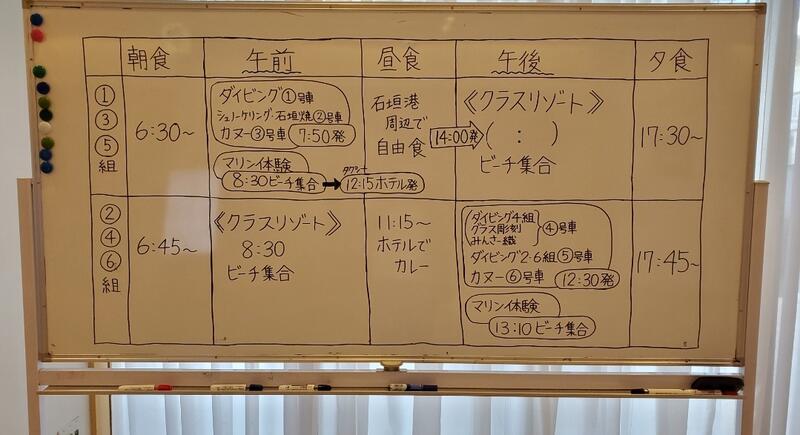 朝食 午前 昼食 午後 夕食
①
③
⑤
組
6:30〜
ダイビング①号車
シュノーケリング・石垣焼②号車
カヌー③号車 7:50発
マリン体験
8:30ビーチ集合
➡
タクシー
12:15ホテル発
石垣港
周辺で
自由食
14:00発
《クラスリゾート》
( : )
ビーチ集合
17:30〜
②
④
⑥
組
6:45〜
《クラスリゾート》
8:30
ビーチ集合
11:15〜
ホテルで
カレー
ダイビング4組
グラス彫刻
みんさー織
④号車
ダイビング2・6組⑤号車
カヌー⑥号車 12:30発
マリン体験
13:10ビーチ集合
17:45〜